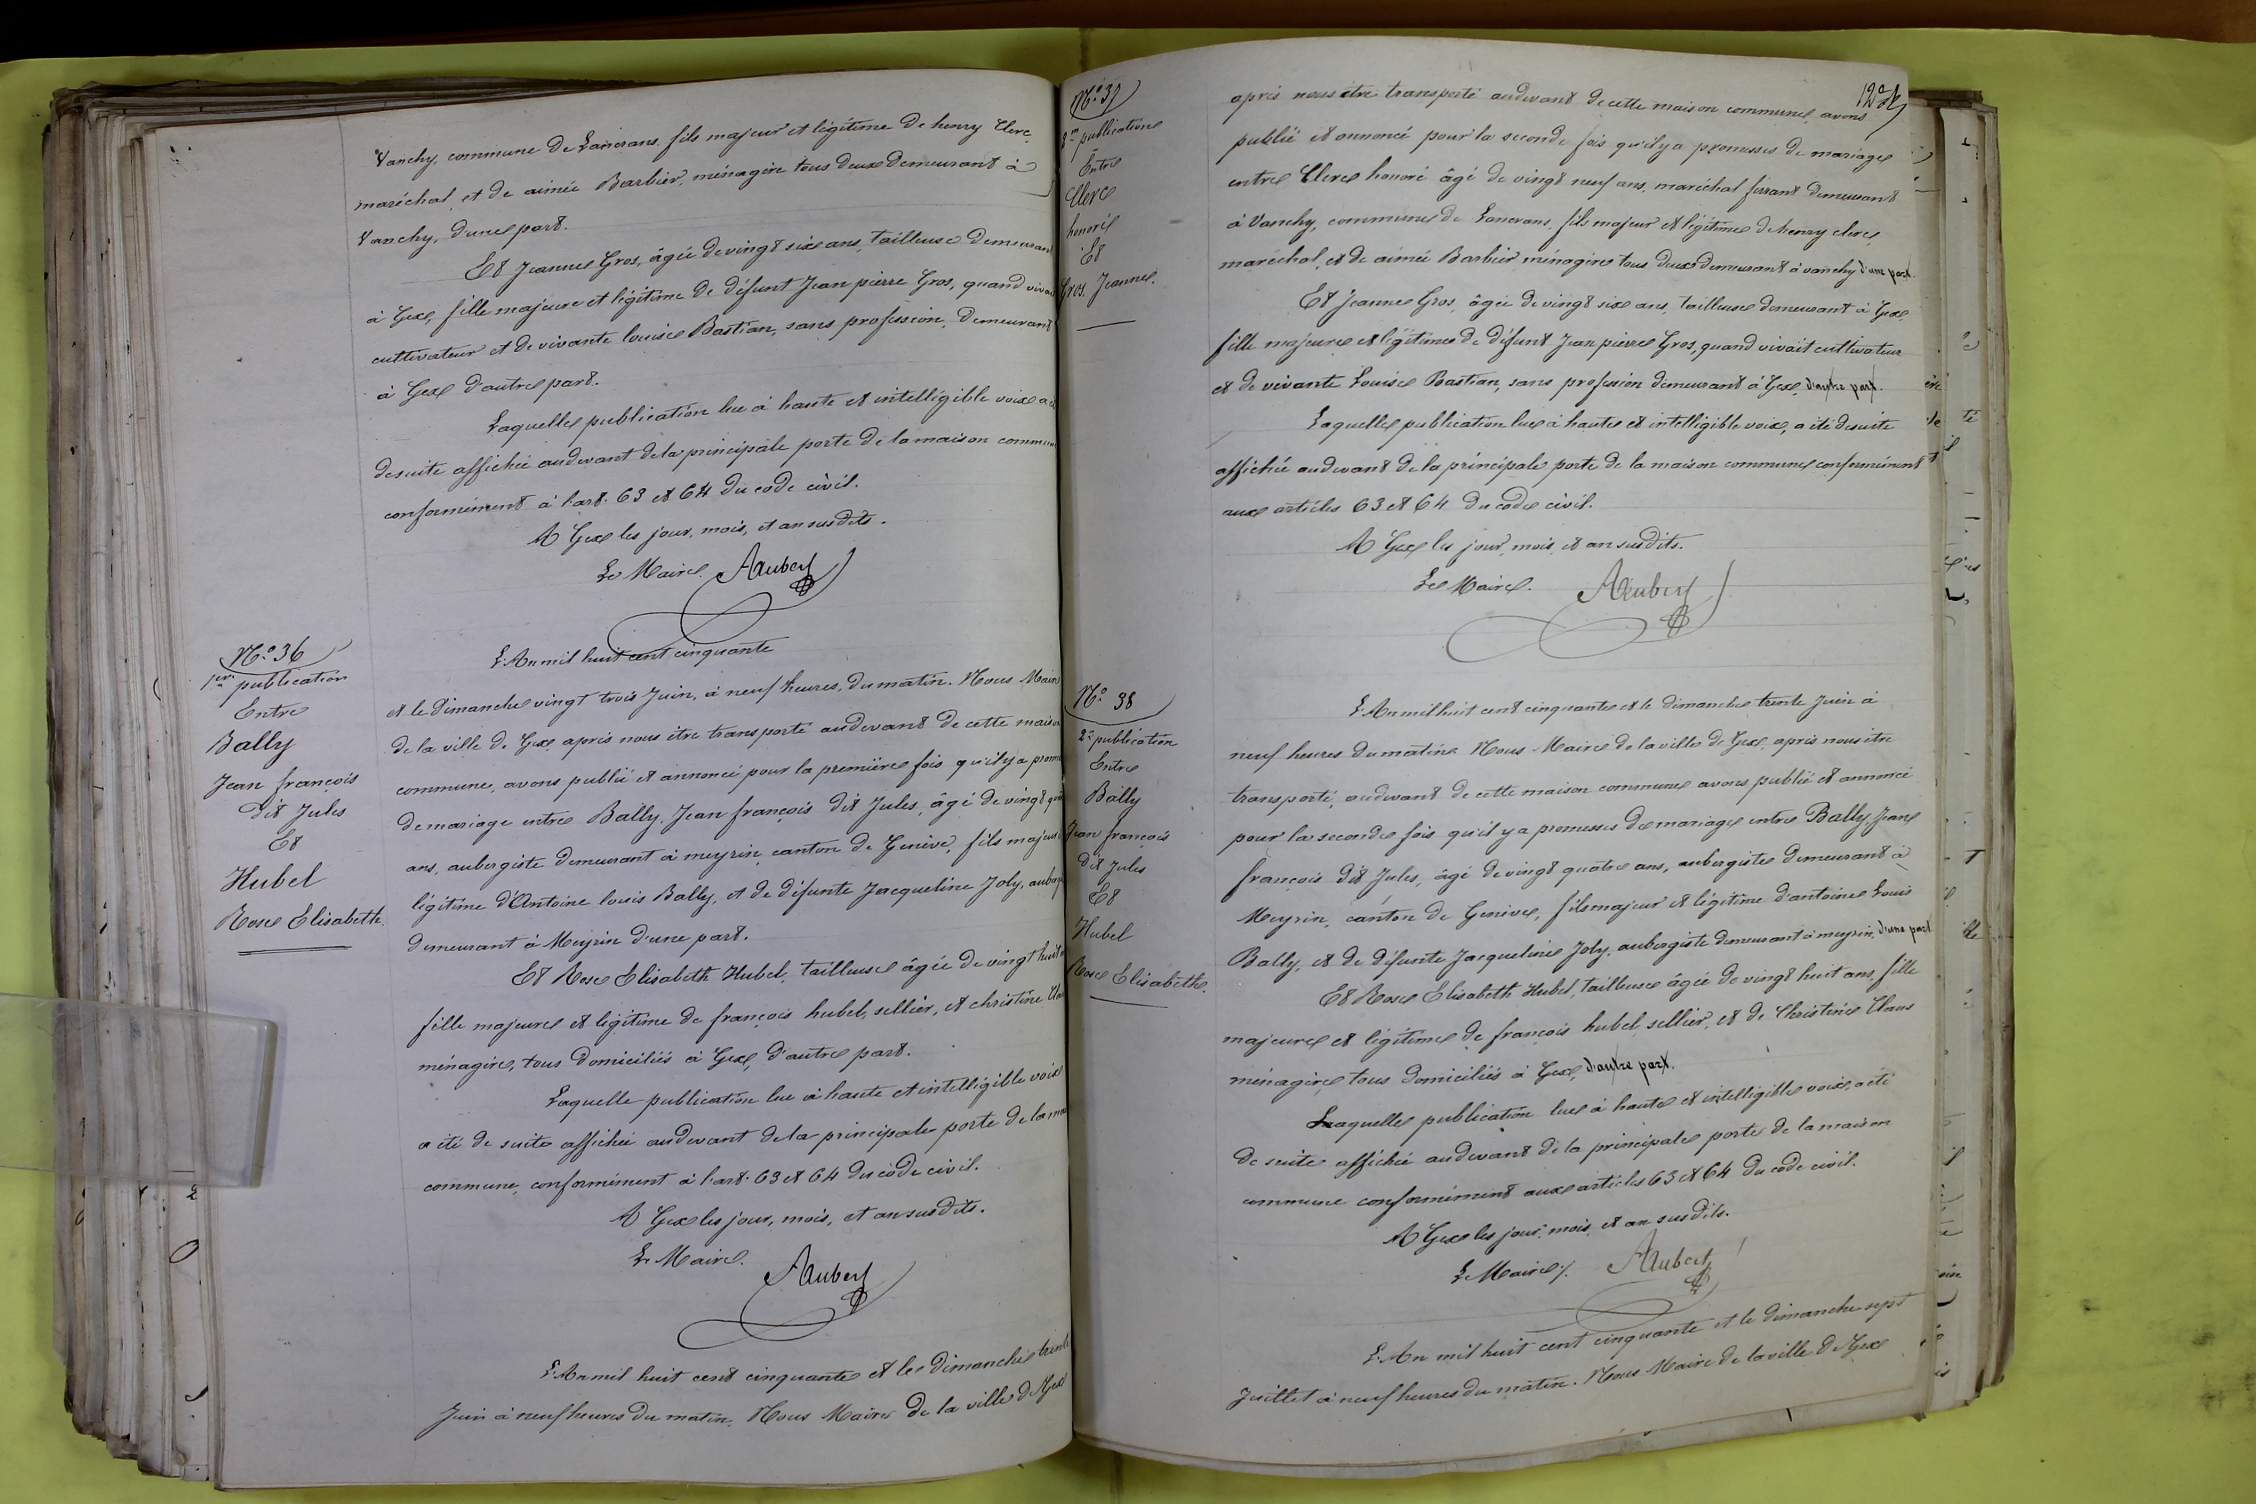 Vanchy, commune de Lancrans, fils majeur et légitime de henry Clerc
maréchal, et de aimée Barbier, ménagère tous deux demeurant à
Vanchy, d'une part.
Et Jeanne Gros, âgée de vingt six ans, tailleuse demeurant
à Gex, fille majeure et légitime de défunt Jean pierre Gros, quand vivait
cultivateur et de vivante louise Bastian, sans profession, demeurant
à Gex d'autre part.
Laquelle publication lue à haute et intelligible voix a été
desuite affichée audevant de la principale porte de la maison commune
conformément à l'art. 63 et 64 du code civil.
A Gex les jour, mois, et an susdits.
Le Maire. Aubert
N.° 36
1ere publication
Entre
Bally
Jean françois
dit Jules
Et
Hubel
Rose Elisabeth.
L'An mil huit cent cinquante
et le dimanche vingt trois Juin, à neuf heures, du matin. Nous Maire
de la ville de Gex, après nous être transporté audevant de cette maison
commune, avons publié et annoncé pour la première fois qu'il y a prom
de mariage entre Bally, Jean françois dit Jules, âgé de vingt qua
ans, aubergiste demeurant à meyrin, canton de Genève, fils majeur
légitime d'Antoine louis Bally, et de défunte Jacqueline Joly, auberg
demeurant à Meyrin d'une part.
Et Rose Elisabeth Hubel, tailleuse âgée de vingt huit
fille majeure et légitime de françois hubel, sellier, et christine Clau
ménagère, tous domiciliés à Gex, d'autre part.
Laquelle publication lue à haute et intelligible voix
a été de suite affichée audevant de la principale porte de la mai
commune, conformément à l'art. 63 et 64 du code civil.
A Gex les jour, mois, et an susdits.
Le Maire. Aubert
L'An mil huit cent cinquante et le dimanche trente
Juin à neuf heures du matin. Nous Maire de la ville de Gex
N.° 37
2me publication
Entre
Clerc
honoré
Et
Gros Jeanne.
après nous être transporté audevant de cette maison commune, avons
publié et annoncé pour la seconde fois qu'il y a promesses de mariage
entre Clerc honoré âgé de vingt neuf ans, maréchal ferrant demeurant
à Vanchy, commune de Lancrans, fils majeur et légitime de henry clerc,
maréchal, et de aimée Barbier ménagère tous deux demeurant à vanchy d'une part.
Et Jeanne Gros, âgée de vingt six ans, tailleuse demeurant à Gex,
fille majeure et légitime de défunt Jean pierre Gros, quand vivait cultivateur
et de vivante Louise Bastian, sans profession demeurant à Gex, d'autre part.
Laquelle publication lue à haute et intelligible voix, a été desuite
affichée audevant de la principale porte de la maison commune conformément
aux articles 63 et 64 du code civil.
A Gex les jour, mois, et an susdits.
Le Maire. Aubert
N.° 38
2e publication
Entre
Bally
Jean françois
dit Jules
Et
Hubel
Rose Elisabeth.
L'An mil huit cent cinquante et le dimanche trente Juin à
neuf heures du matin. Nous Maire de la ville de Gex, après nous être
transporté, audevant de cette maison commune avons publié et annoncé
pour la seconde fois qu'il y a promesses de mariage entre Bally, Jean
françois dit Jules, âgé de vingt quatre ans, aubergiste demeurant à
Meyrin, canton de Genève, fils majeur et légitime d'antoine Louis
Bally, et de défunte Jacqueline Joly, aubergiste demeurant à meyrin, d'une part
Et Rose Elisabeth Hubel, tailleuse âgée de vingt huit ans, fille
majeure et légitime de françois hubel sellier, et de Christine Claus
ménagère tous domiciliés à Gex, d'autre part.
Laquelle publication lue à haute et intelligible voix, a été
de suite affichée audevant de la principale porte de la maison
commune conformément aux articles 63 et 64 du code civil.
A Gex les jour, mois, et an susdits.
Le Maire. Aubert
L'An mil huit cent cinquante et le dimanche sept
Juillet à neuf heures du matin. Nous Maire de la ville de Gex